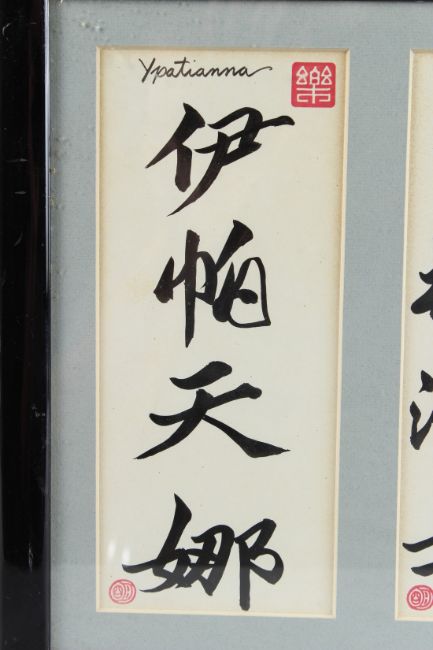 Ypatianna
樂
伊
帕
天
娜